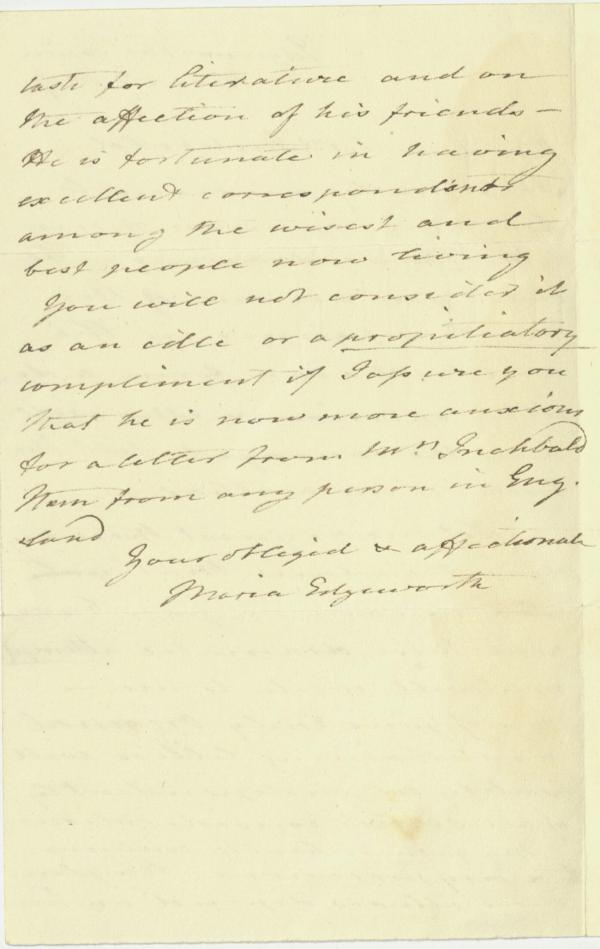 taste for literature and on
the affection of his friends —
He is fortunate in having
excellent correspondents
among the wisest and
best people now living
You will not consider it
as an idle or a propitiatory
compliment if I assure you
that he is now more anxious
for a letter from Mrs Inchbald
than from any person in Eng-
land
Your obliged & affectionate
Maria Edgeworth